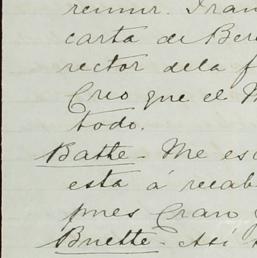 reunir. Iran
carta de Ber
rector dela f
Creo que el M
todo.
Batlle - Me es
esta á recab
pues Craro
Buette. - Así